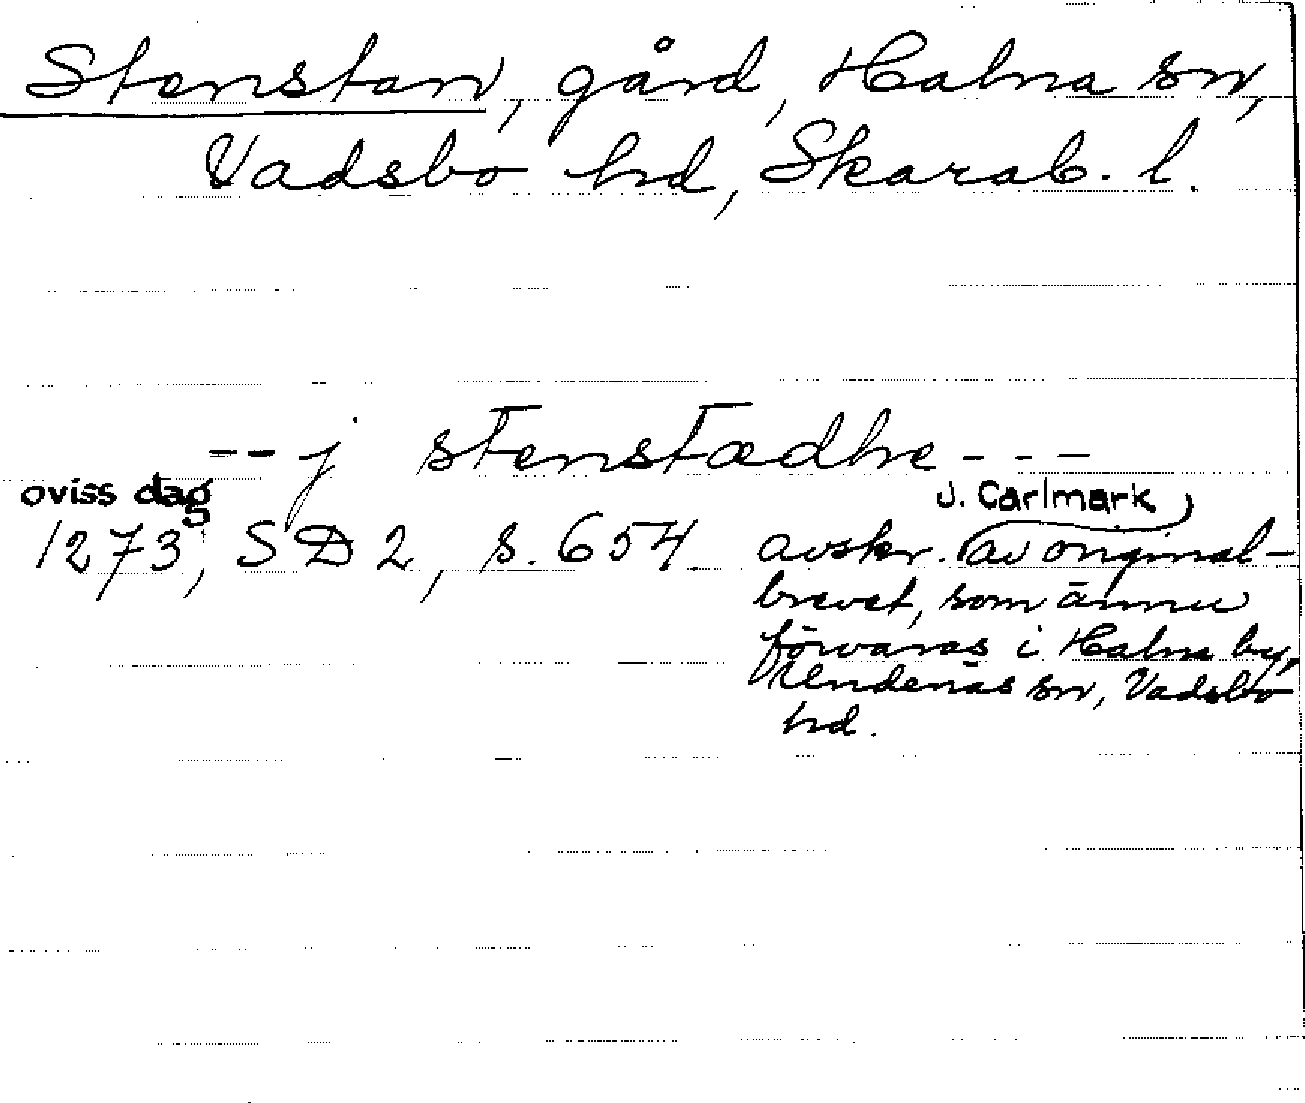 Stenstan, gård, Halna sn,
Vadsbo hd, Skarab. l.
-- j stenstædhe ---
oviss dag
1273, SD 2, s. 654
J. Carlmark
avskr. av original-
brevet, som ännu
förvaras i Halna by,
Undenäs sn, Vadsbo
hd.